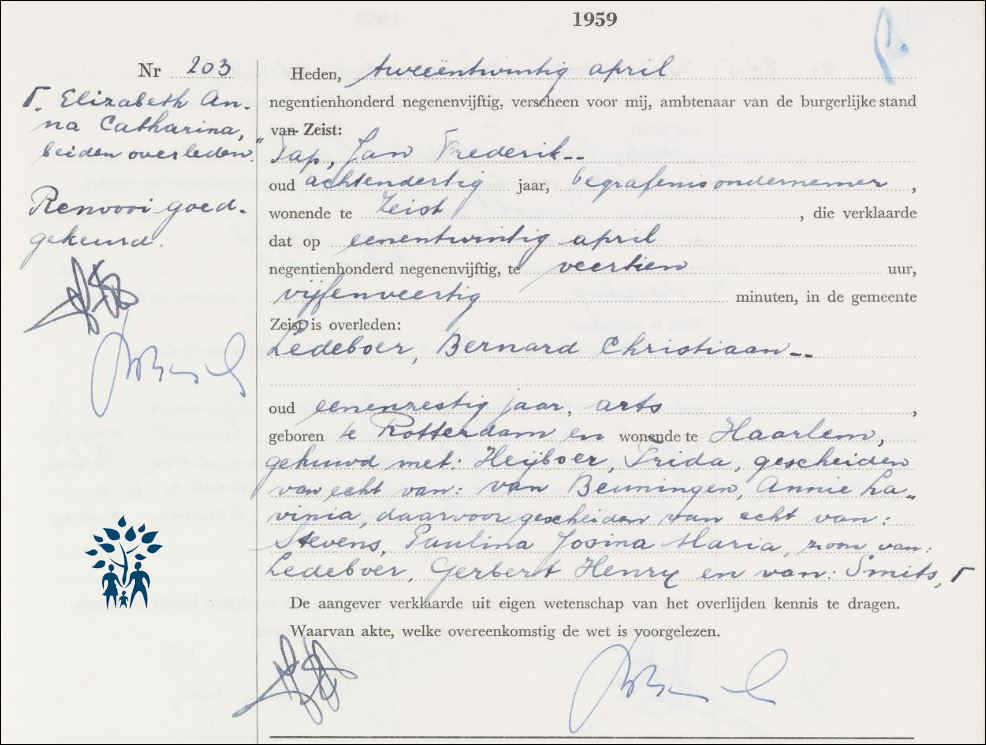 1959
Nr 203
Γ. Elizabeth An-
na Catharina,
beiden overleden."
Renvooi goed-
gekeurd.
Heden, tweeëntwintig april
negentienhonderd negenenvijftig, verscheen voor mij, ambtenaar van de burgerlijke stand
van Zeist:
Tap, Jan Frederik--
oud achtendertig jaar, begrafenisondernemer ,
wonende te Zeist , die verklaarde
dat op eenentwintig april
negentienhonderd negenenvijftig, te veertien uur,
vijfenveertig minuten, in de gemeente
Zeist is overleden:
Ledeboer, Bernard Christiaan--
oud eenenzestig jaar, arts ,
geboren te Rotterdam en wonende te Haarlem,
gehuwd met: Heijboer, Frida, gescheiden
van echt van: van Beuningen, Annie La-
vinia, daarvoor gescheiden van echt van:
Stevens, Paulina Josina Maria, zoon van:
Ledeboer, Gerbert Henry en van: Smits, Γ
De aangever verklaarde uit eigen wetenschap van het overlijden kennis te dragen.
Waarvan akte, welke overeenkomstig de wet is voorgelezen.